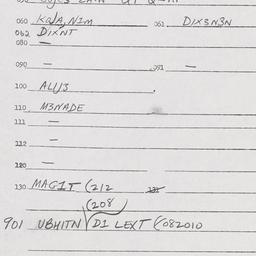 060 KQJA, N1M 061 DIX3N3N
062 DIXNT
080 —
090 — 091 —
100 ALIJ3
110 M3NADE
111 —
112 —
120 —
130 MAGIT (212
(208)
901 UBHITN DI LEXT (082010